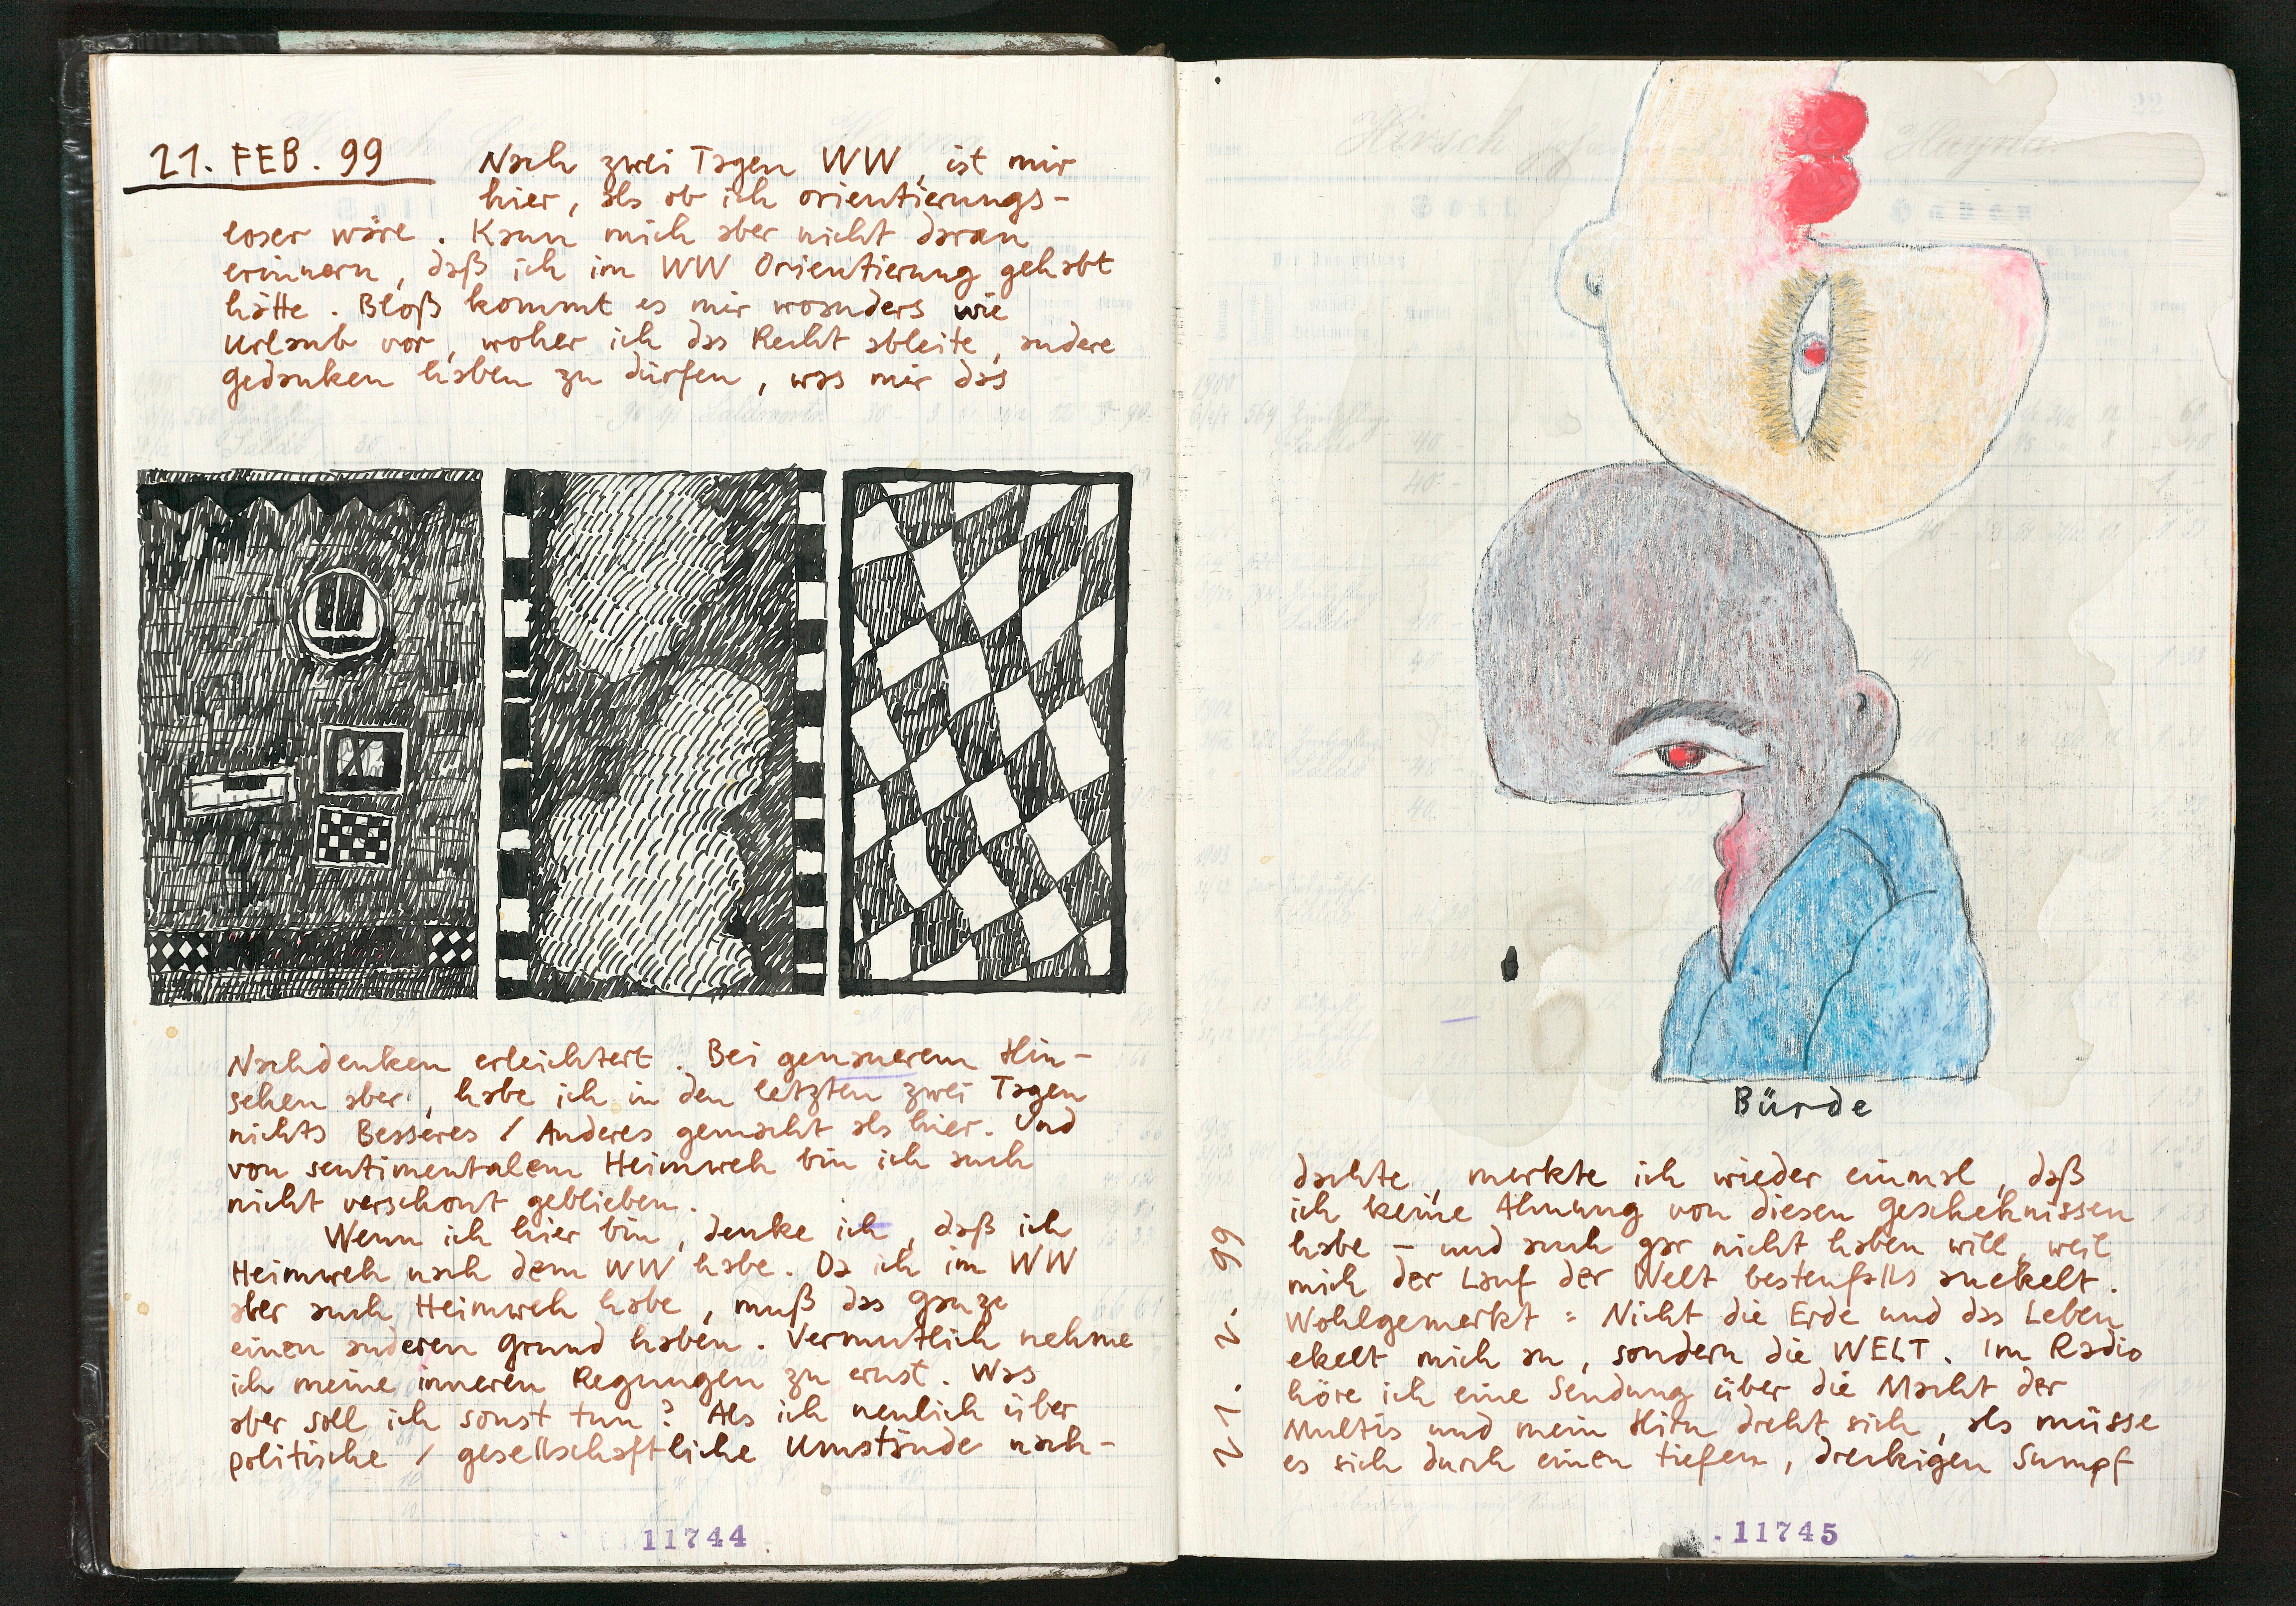 21. FEB. 99
Nach zwei Tagen WW, ist mir
hier, als ob ich orientierungs-
loser wäre. Kann mich aber nicht daran
erinnern, daß ich im WW Orientierung gehabt
hätte. Bloß kommt es mir woanders wie
Urlaub vor, woher ich das Recht ableite, andere
Gedanken haben zu dürfen, was mir das
Nachdenken erleichtert. Bei genauerem Hin-
sehen aber, habe ich in den letzten zwei Tagen
nichts Besseres / Anderes gemacht als hier. Und
von sentimentalem Heimweh bin ich auch
nicht verschont geblieben.
Wenn ich hier bin, denke ich, daß ich
Heimweh nach dem WW habe. Da ich im WW
aber auch Heimweh habe, muß das ganze
einen anderen Grund haben. Vermutlich nehme
ich meine inneren Regungen zu ernst. Was
aber soll ich sonst tun? Als ich neulich über
politische / gesellschaftliche Umstände nach-
11744
Hirsch
Hayna
Bürde
dachte, merkte ich wieder einmal, daß
ich keine Ahnung von diesen Geschehnissen
habe - und auch gar nicht haben will, weil
mich der Lauf der Welt bestenfalls anekelt.
Wohlgemerkt: Nicht die Erde und das Leben
ekelt mich an, sondern die WELT. Im Radio
höre ich eine Sendung über die Macht der
Multis und mein Hirn dreht sich, als müsse
es sich durch einen tiefen, dreckigen Sumpf
21. 2. 99
11745